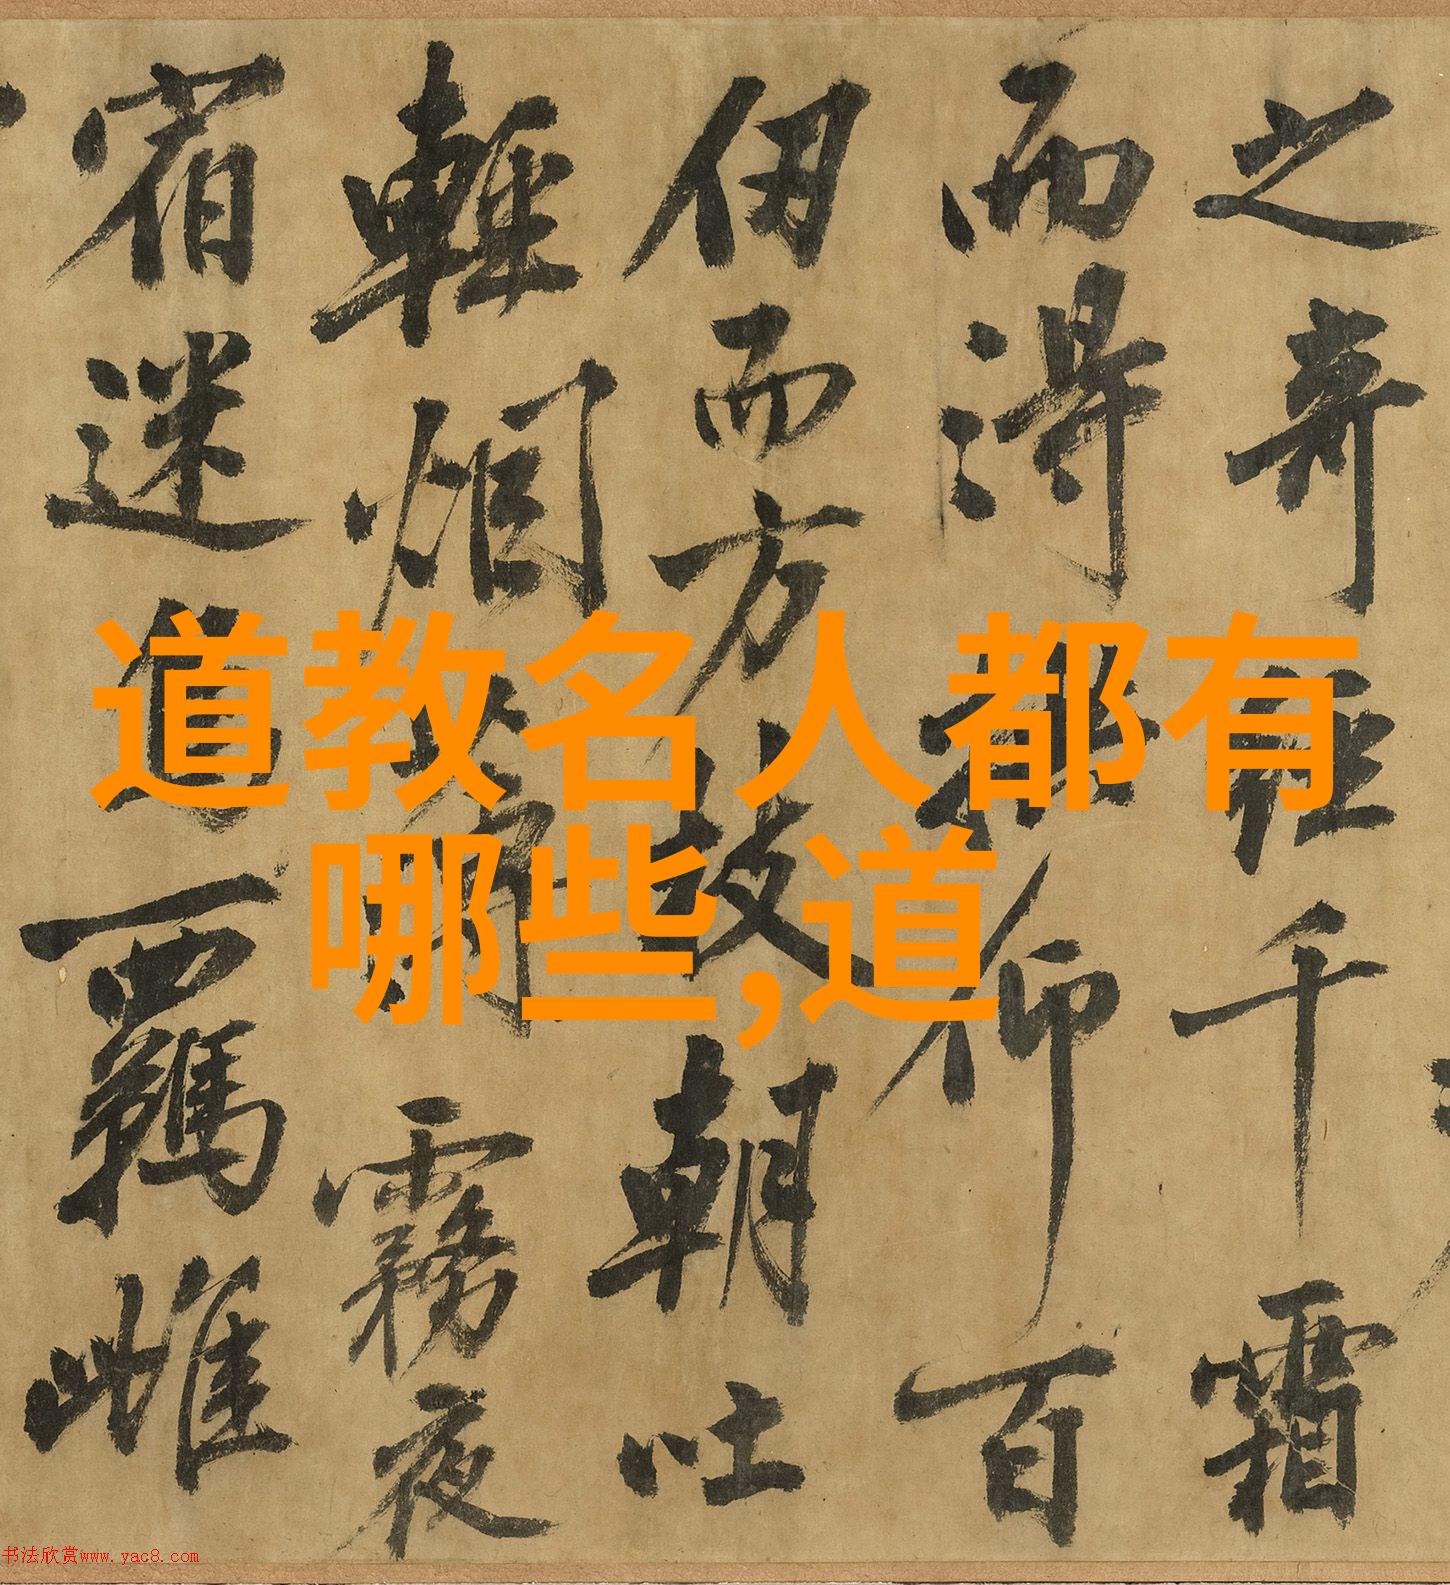 道教名人都有
哪些,道
之奇經千霜
而得仰百
仞而方枝朝吐
輕烟霧夜
宿迷羈雌
书法欣赏www.yac8.com